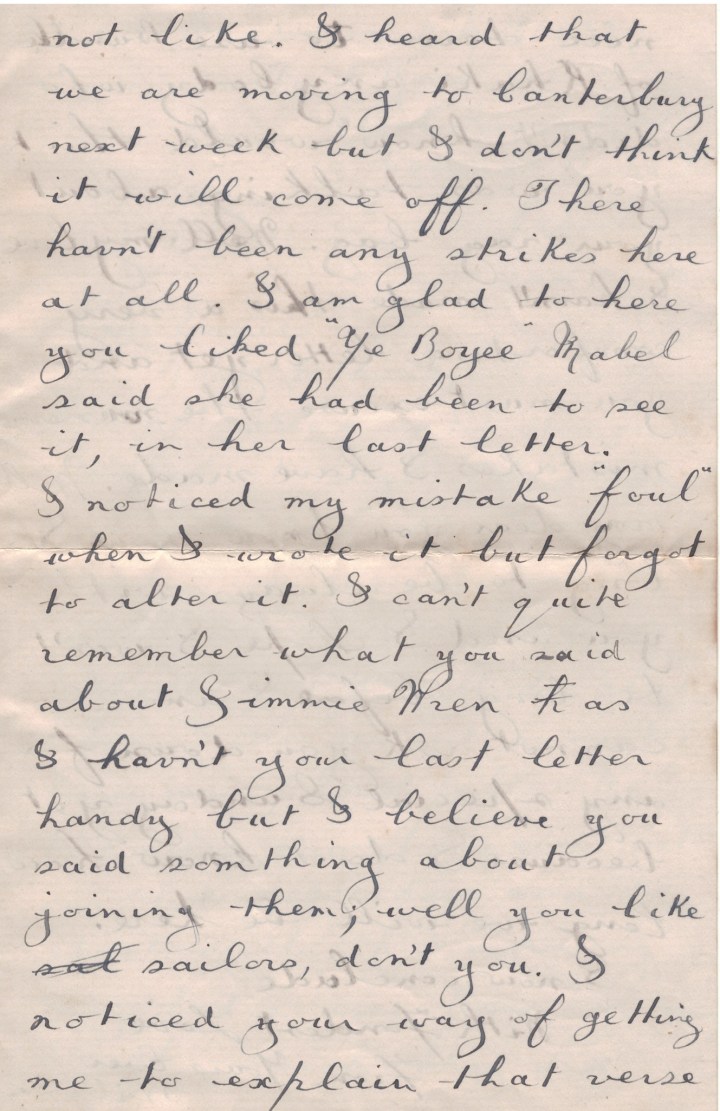 not like. I heard that
we are moving to Canterbury
next week but I don't think
it will come off. There
havn't been any strikes here
at all. I am glad to here
you liked "Ye Boyee" Mabel
said she had been to see
it, in her last letter.
I noticed my mistake "foul"
when I wrote it but forgot
to alter it. I can't quite
remember what you said
about Jimmie Wren as
I havn't your last letter
handy but I believe you
said somthing about
joining them; well you like
sailors, don't you. I
noticed your way of getting
me to explain that verse